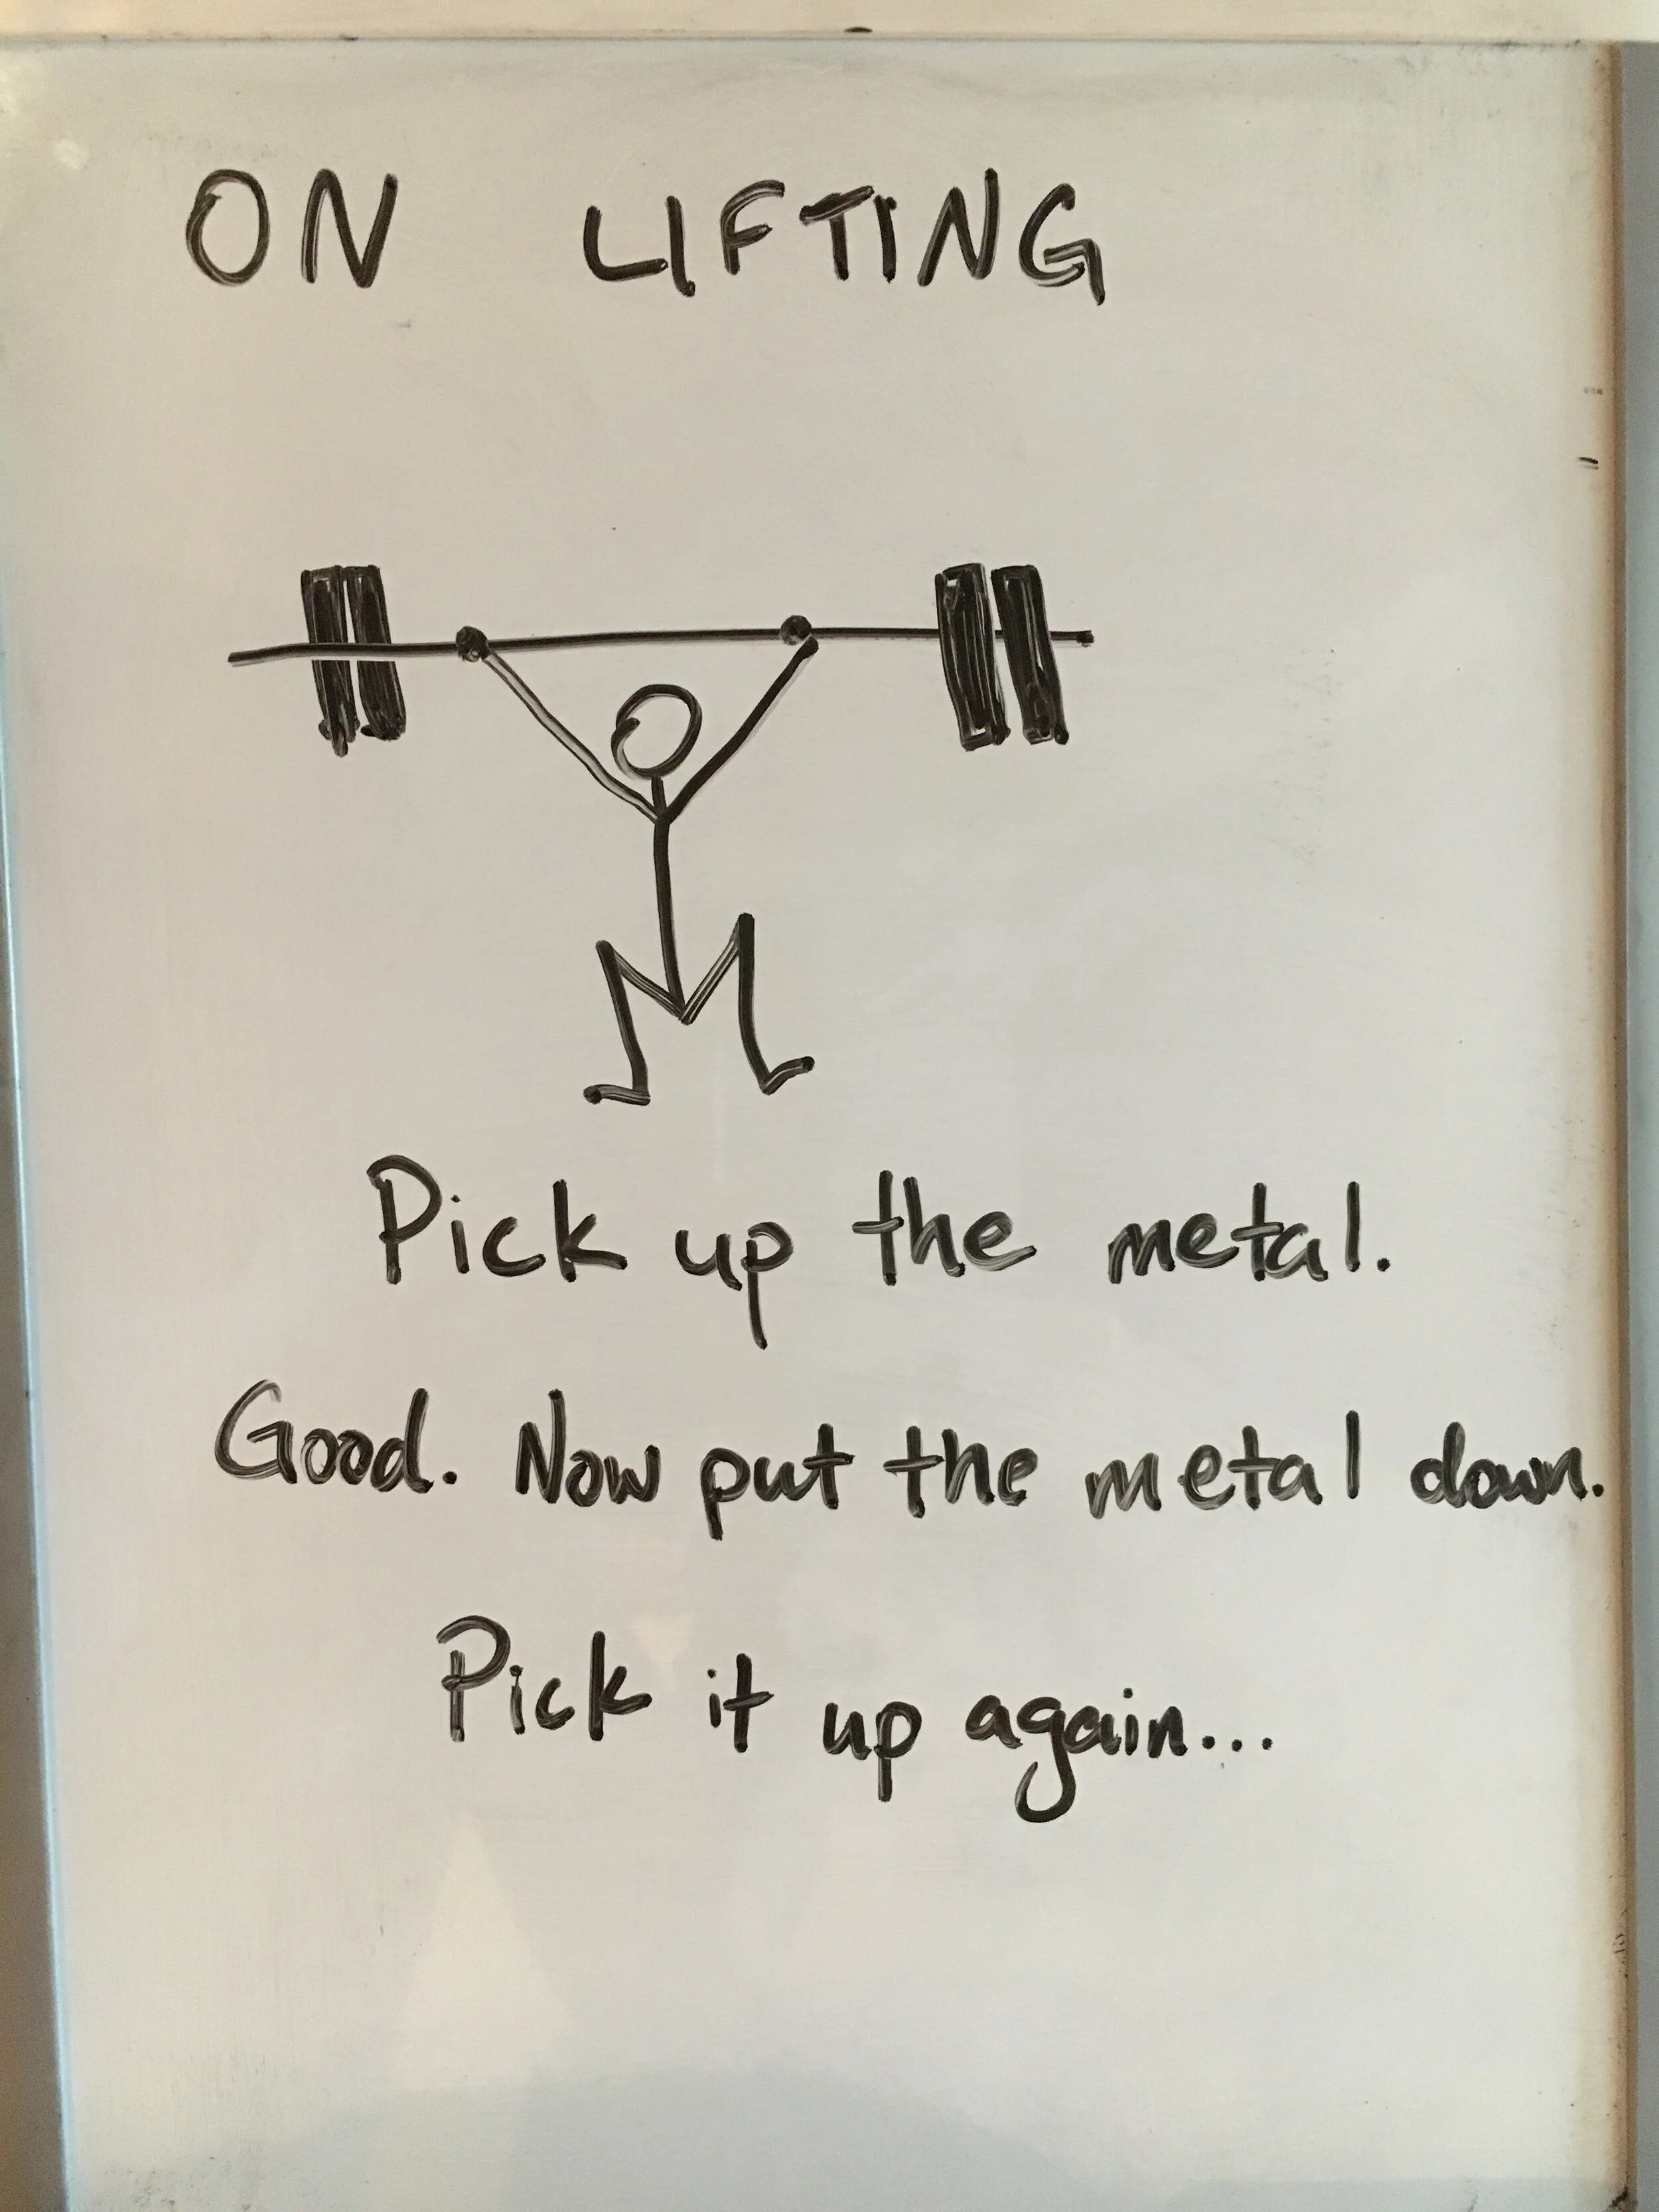 ON LIFTING
Pick up the metal.
Good. Now put the metal down.
Pick it up again...